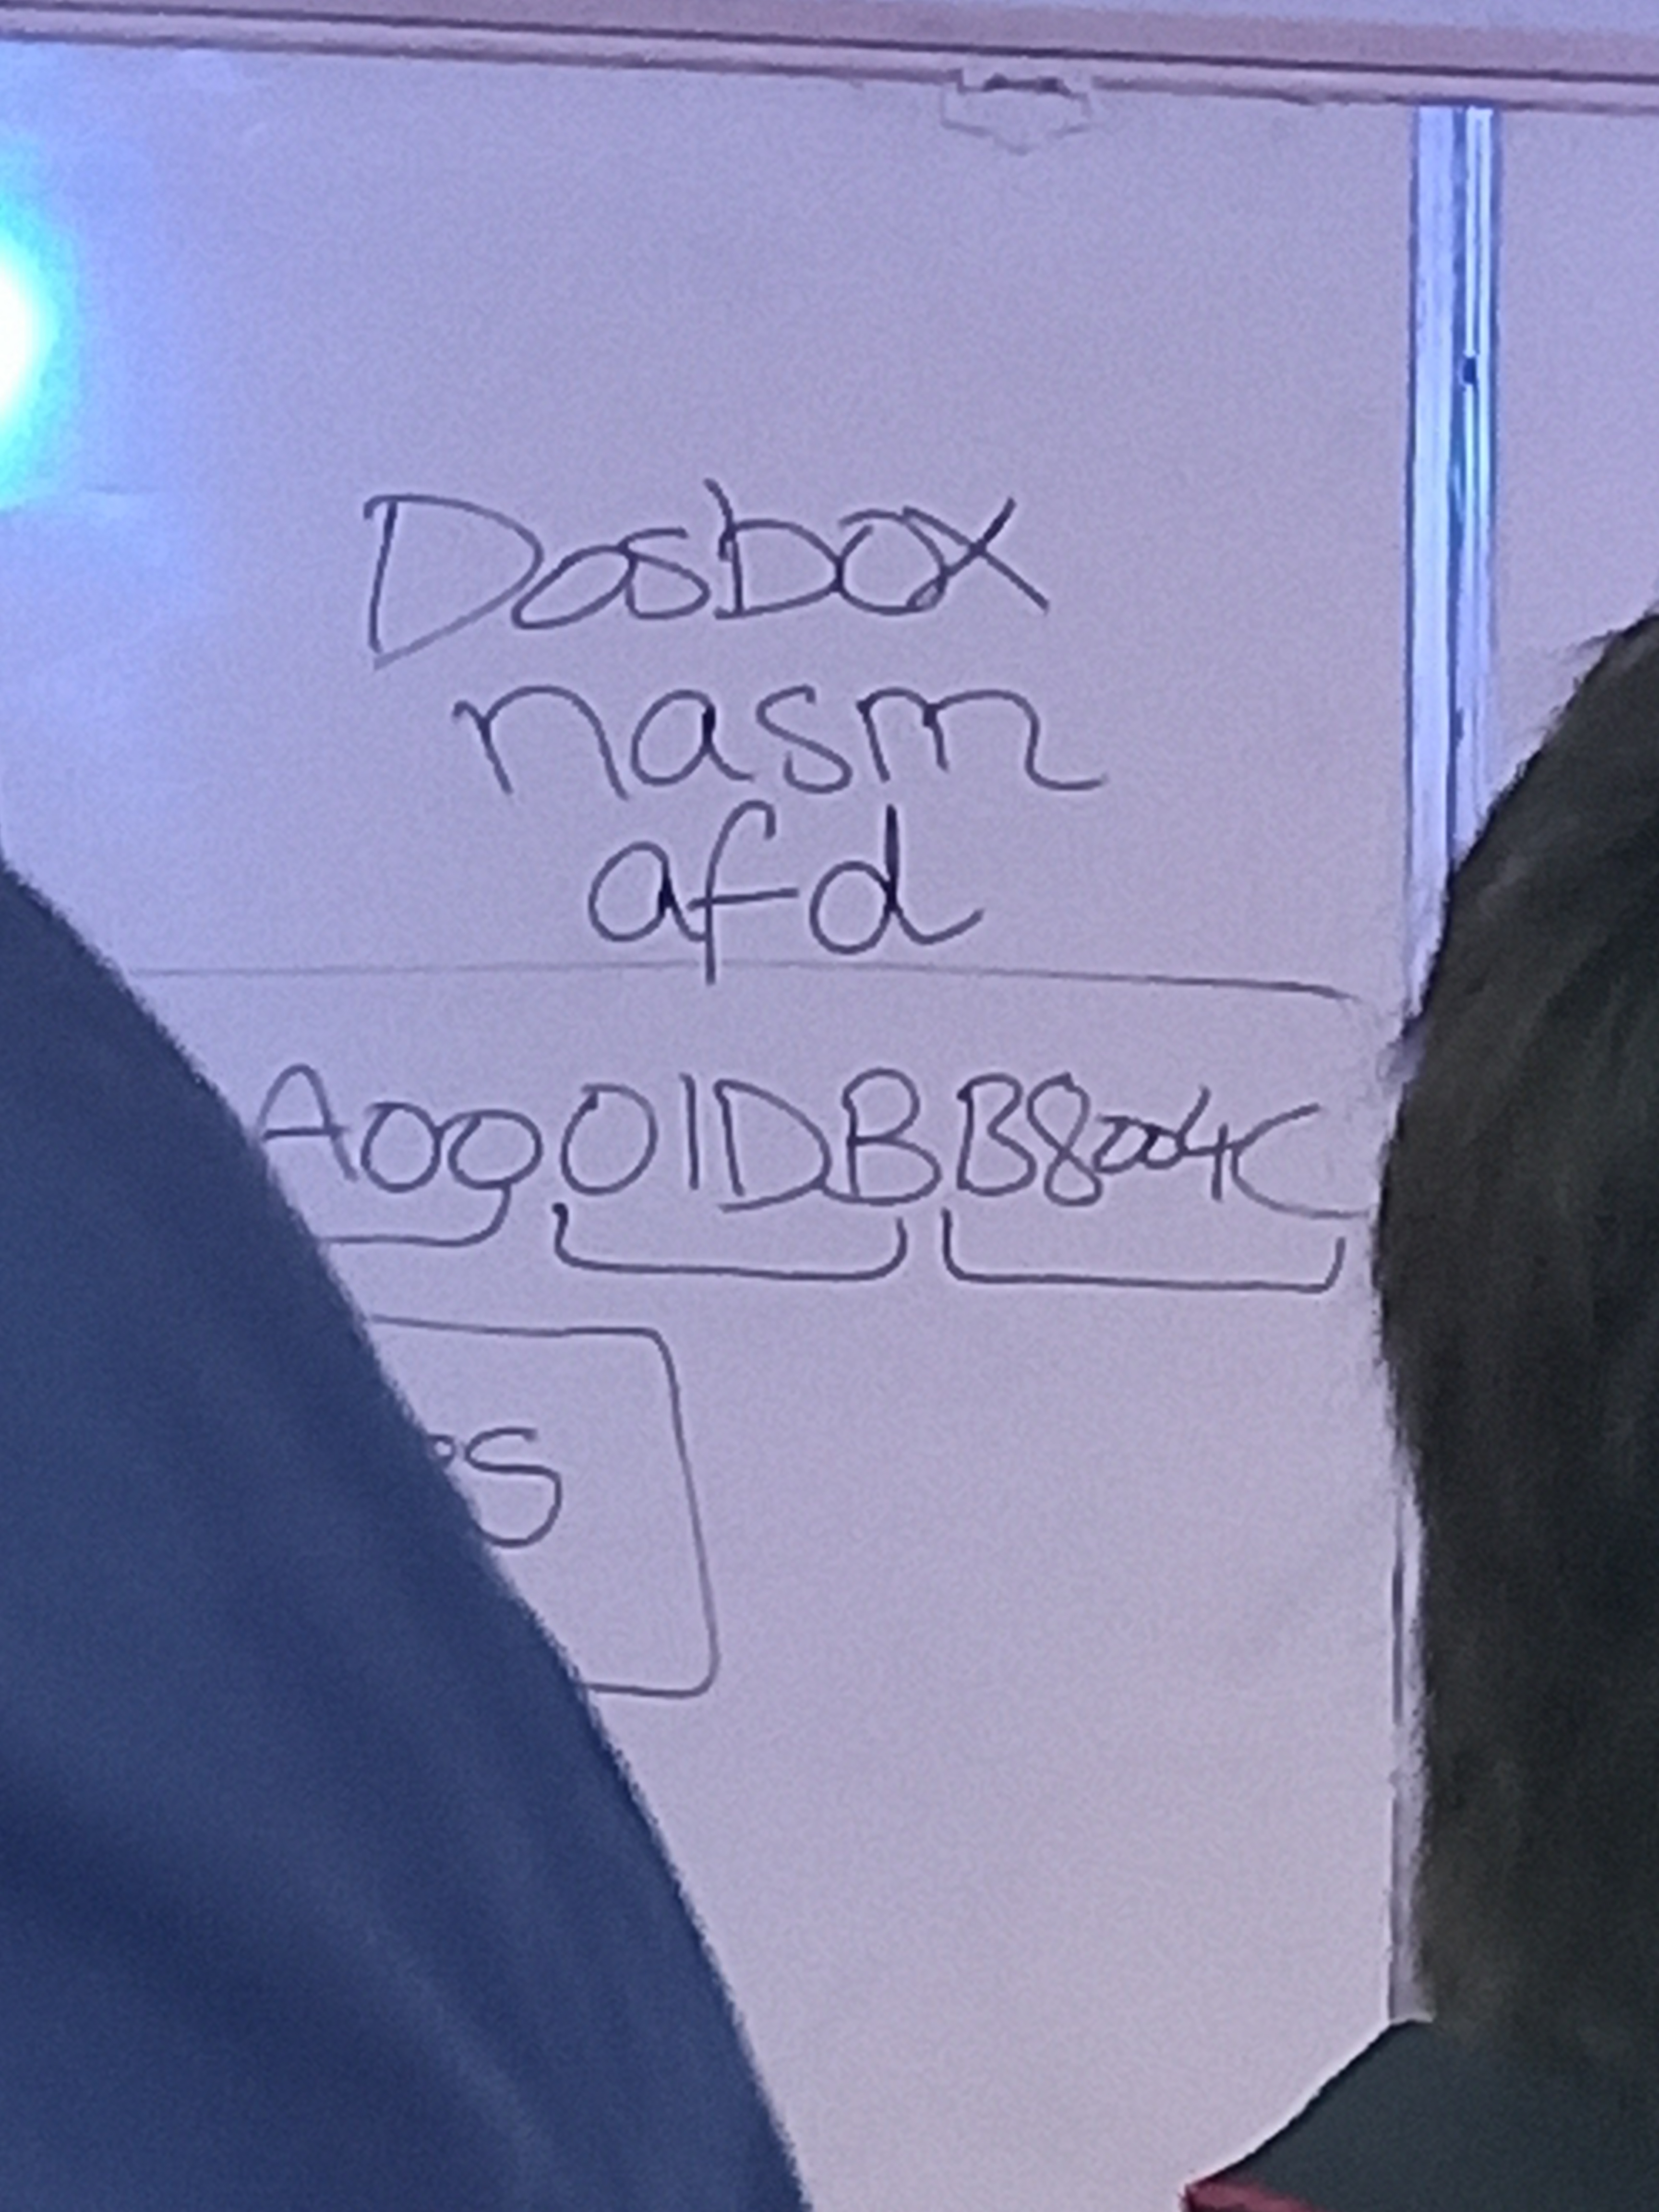 Dosbox
nasm
afd
A00 01DB B8004C
S